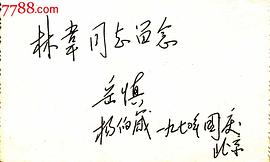 7788.com
林韋同志留念
岳慎
杨伯箴 一九七〇年国庆
北京